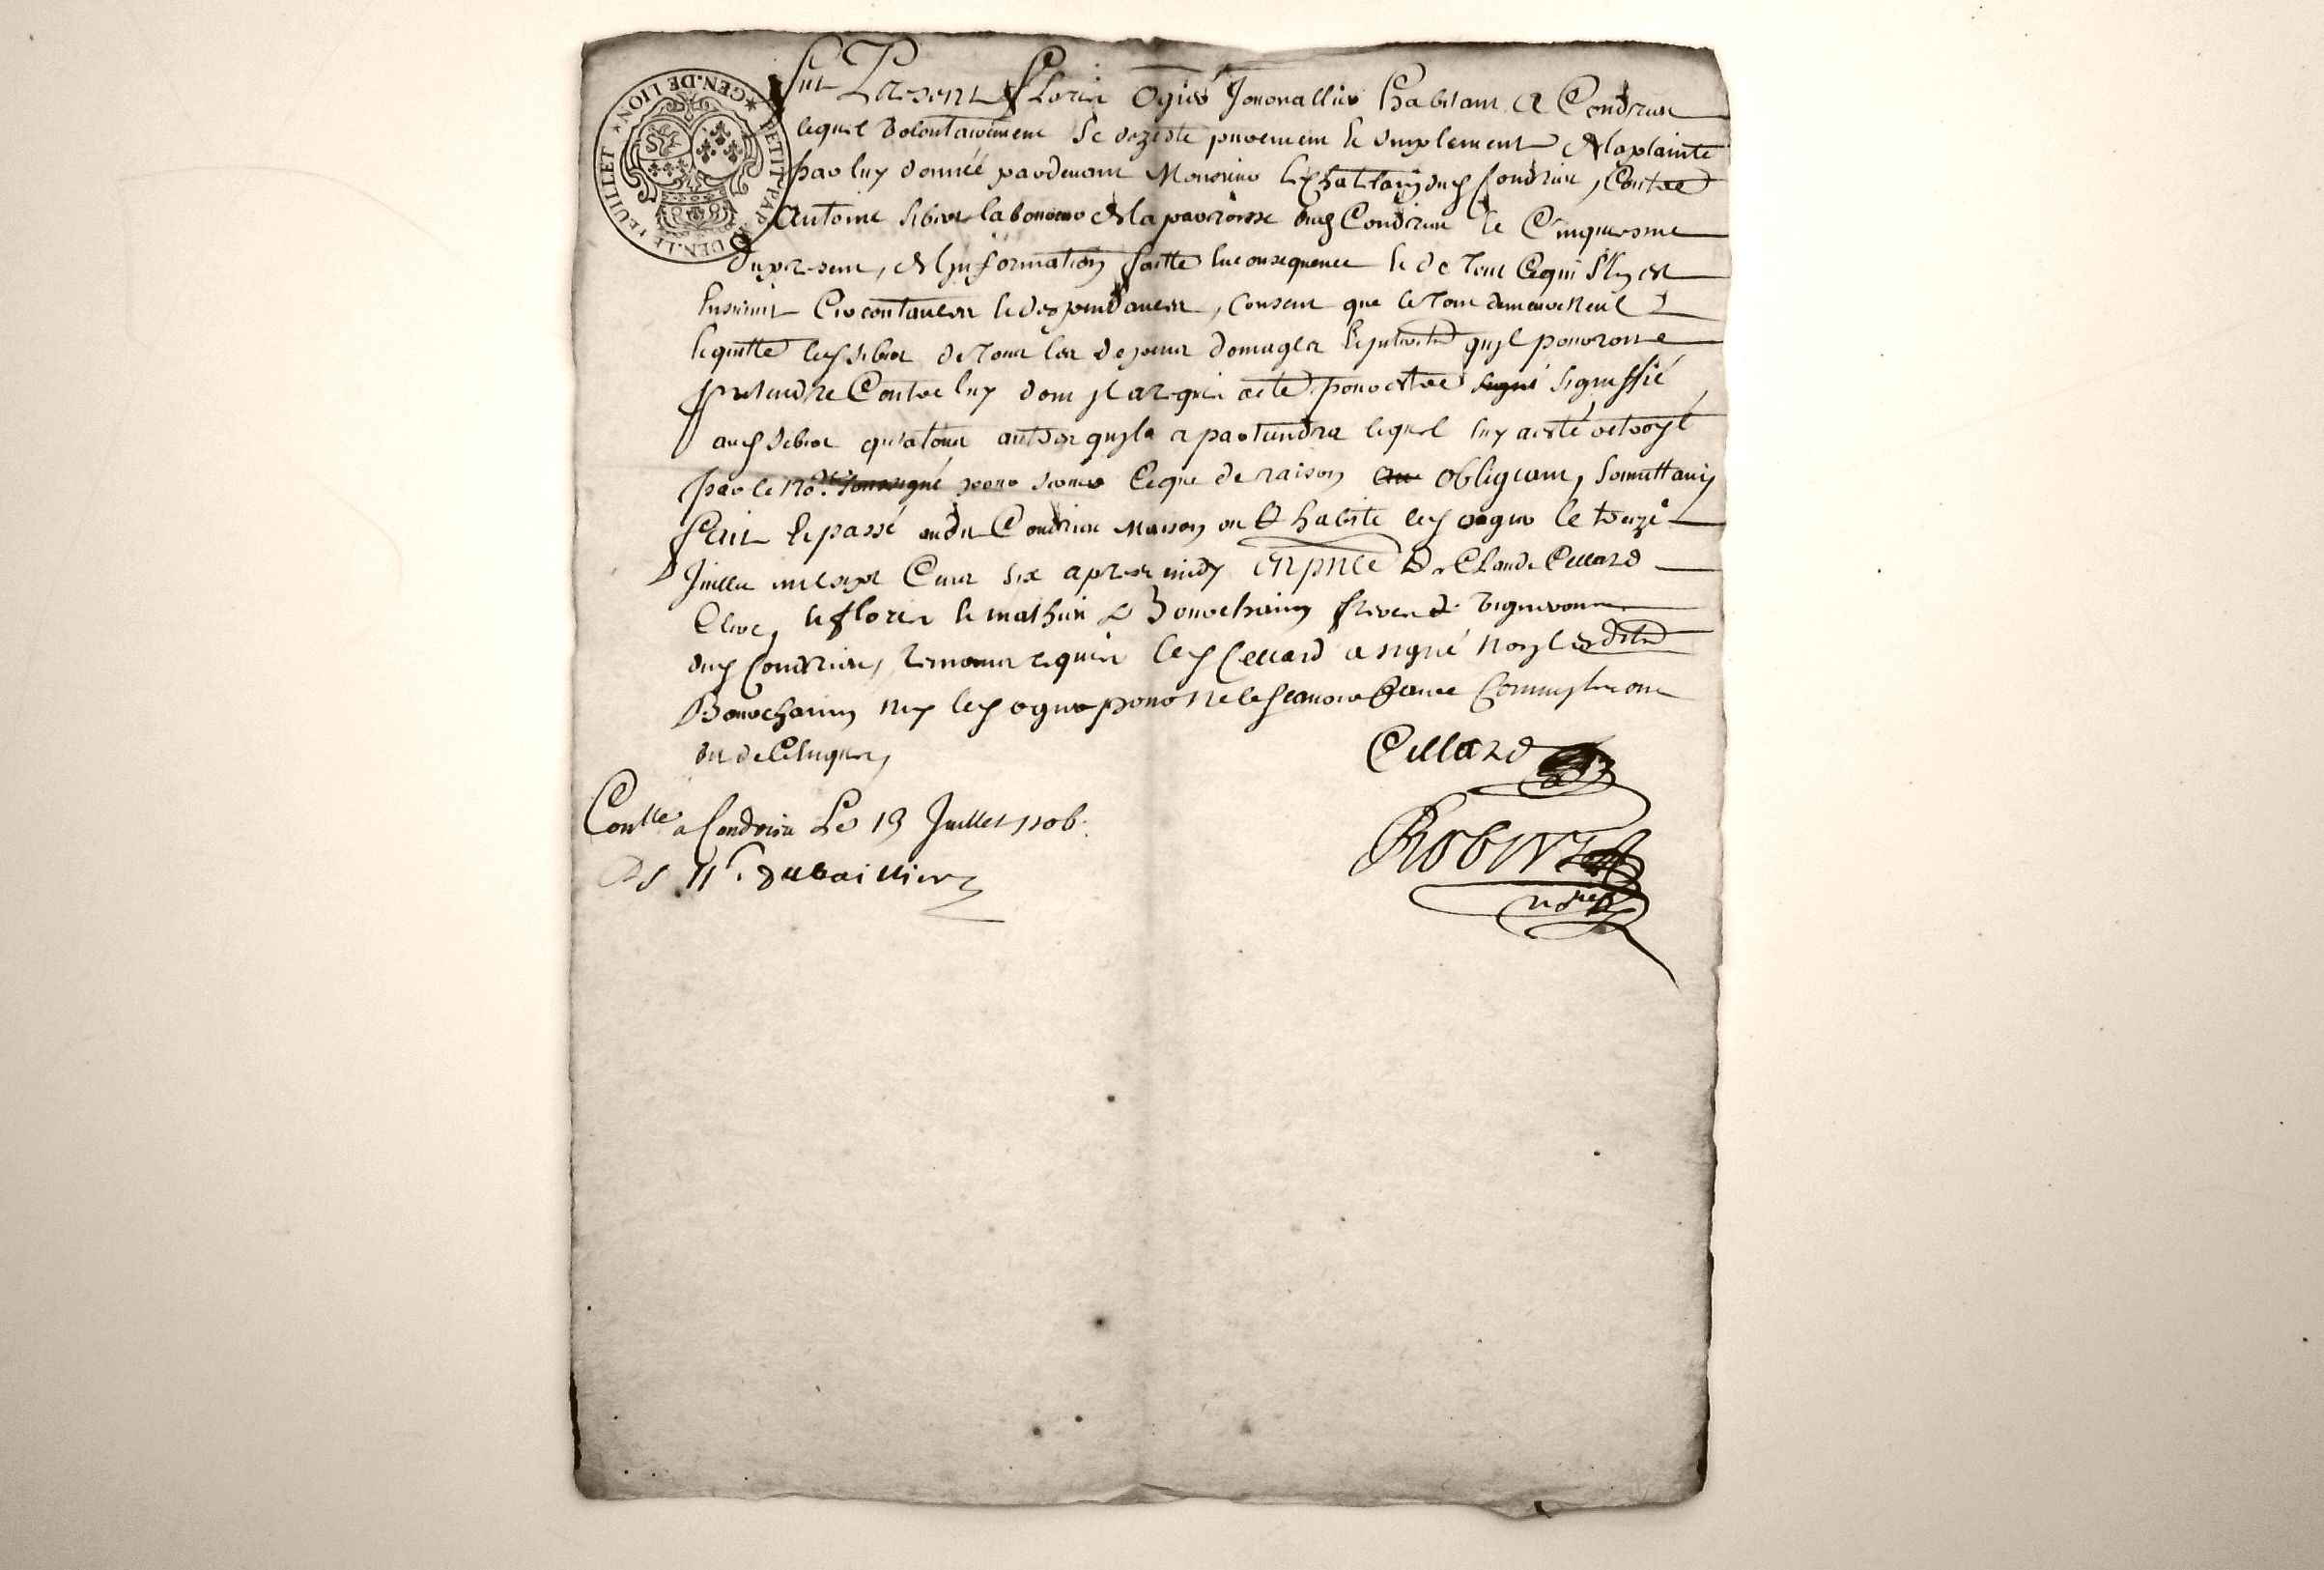 ★ GEN. DE LION ★ PETIT PAP DEN. LE FEUILLET
Fut Present Floris Ogier Journallier habitant a Condrieu
lequel volontairement se deziste purement et simplement de la plainte
par luy donnée pardevant Monsieur le chastelain dud Condrieu, Contre
Antoine laboureur de la parroisse dud Condrieu le Cinquiesme
du present, de l'information faitte en consequence et de tout ce qui s'en est
ensuivi Circonstances et dependances, consent que le tout demeure nul
et quitte led de tous les depens domages et interests qu'il pourroit
pretendre Contre luy dont il a requis acte pour estre signé signiffié
aud qu'a tous autres qu'il apartiendra lequel luy a esté octroyé
par le no.re soussigné pour servir ce que de raison obligeant, soumettant
fait et passé aud Condrieu maison ou habite led ogier le treize
Juillet mil sept Cent six apres midy en pnce de Sr Claude Cellard
Clerc, et et mathieu Bonnechaim freres vignerons
dud Condrieu, temoins requis led Cellard a signé non lesdits
Bonnechaim ny led ogier pour ne le scavoir faire comme ils ont
dit de ce enquis
Cellard
Conlle a Condrieu Le 13 Juillet 1706.
Robert
nore